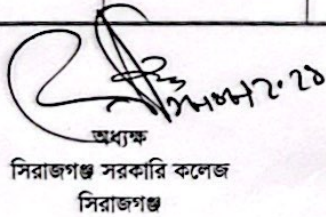 অধ্যক্ষ
সিরাজগঞ্জ সরকারি কলেজ
সিরাজগঞ্জ